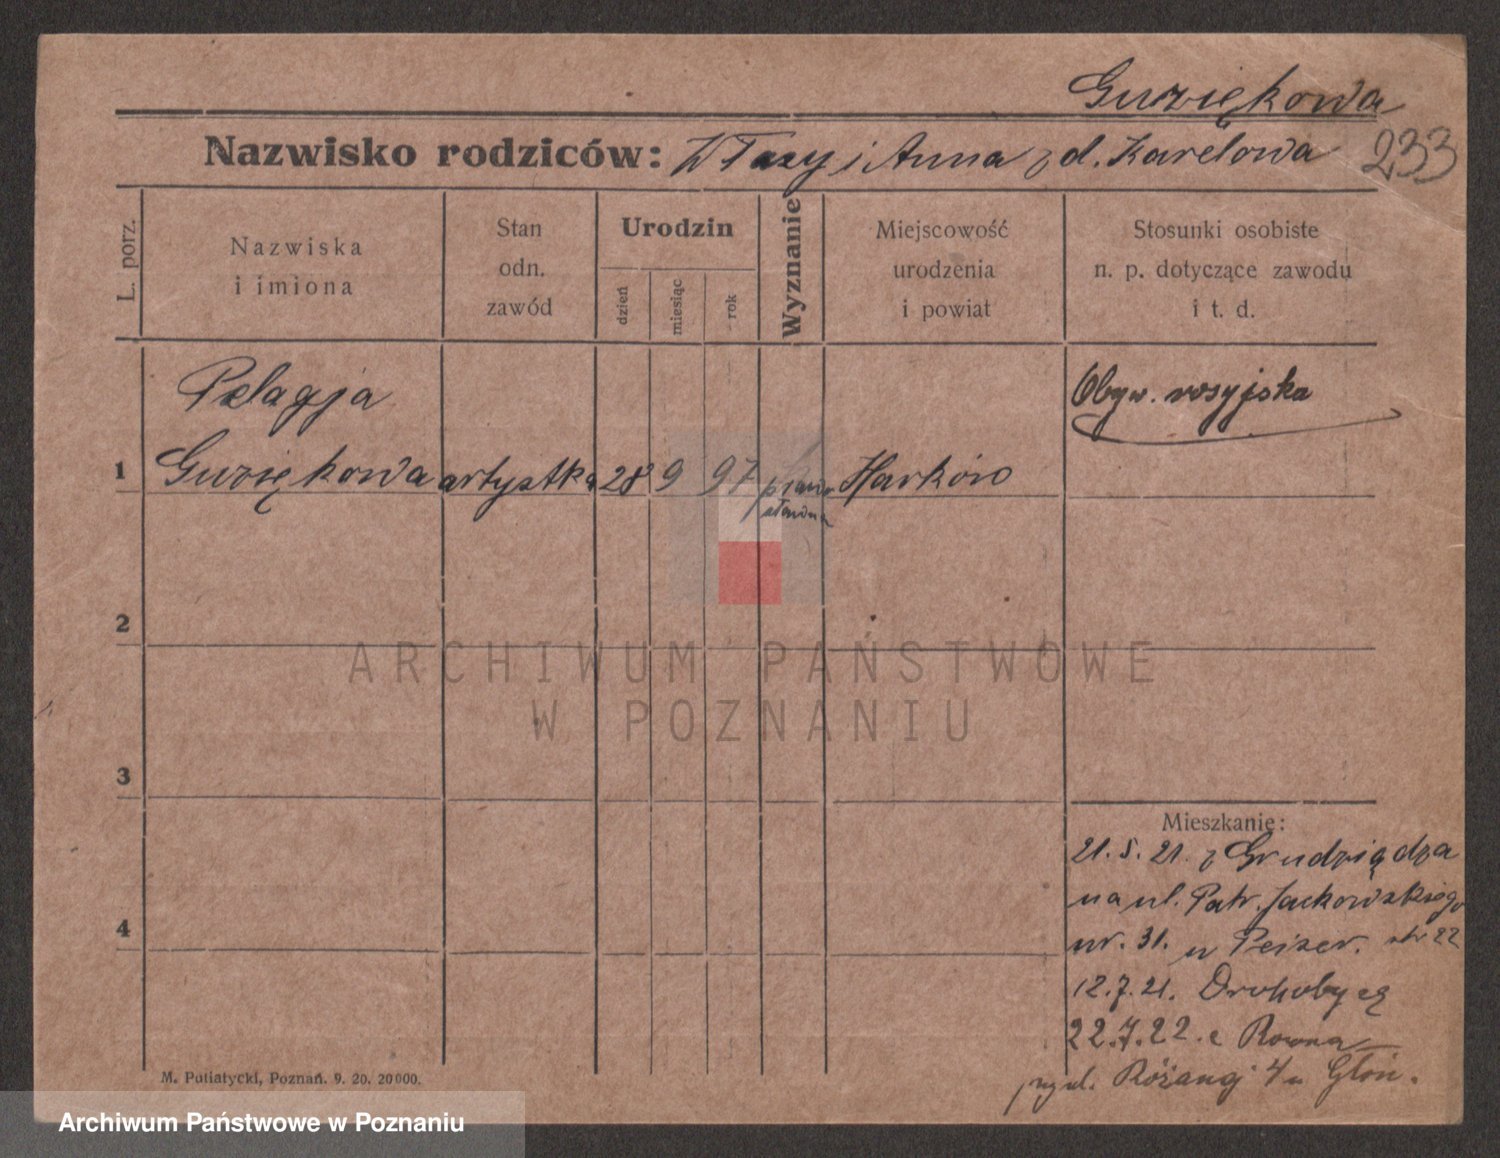 Guziękowa
Nazwisko rodziców: Własy i Anna z d. Karelowa 233
L. porz.
Nazwiska
i imiona
Stan
odn.
zawód
Urodzin
dzień
miesiąc
rok
Wyznanie
Miejscowość
urodzenia
i powiat
Stosunki osobiste
n. p. dotyczące zawodu
i t. d.
Pelagja
Obyw. rosyjska
1 Guziękowa artystka 28 9 97 prawo Harków
sławna
2
ARCHIWUM PAŃSTWOWE
W POZNANIU
3
Mieszkanie:
21.5.21. z Grudziądza
na ul. Patr. Jackowskiego
4
nr. 31. u Peiser. 22
12.7.21. Drohobycz
22.7.22. z Rowna
przy ul. Różanej 4 u Głon.
M. Putiatycki, Poznań. 9. 20. 20000.
Archiwum Państwowe w Poznaniu